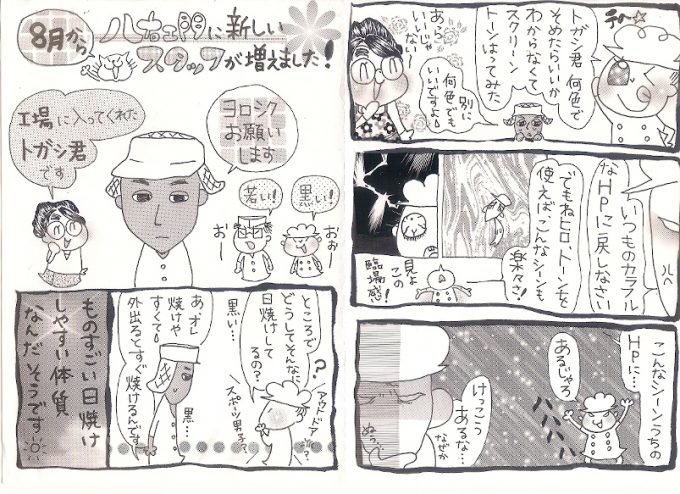 8月から
八右ヱ門に新しい
スタッフが増えました!
工場に入ってくれた
トガシ君
です
ヨロシク
お願い
します
若い!
おー
黒い!
おぉー
ところで
どうしてそんなに
日焼けして
るの?
黒い…
スポーツ男子?
アウトドア
?
あ、オレ
焼けや
すくて
外出るとすぐ焼けるんです
黒…
ものすごい日焼け
しやすい体質
なんだそうです
テヘ☆
トガシ君 何色で
そめたらいいか
わからなくて
スクリーン
トーンはってみた
あら
いいじゃ
なーい
別に
何色でも
いいですよ
いつものカラフル
なHPに戻しなさい
でもねヒロ、トーンを
使えば、こんなシーンも
楽々さ!
見よ
この
臨場感!
こんなシーンうちの
HPに…
あるじゃろ
けっこう
あるな…
なぜか
ぬっ